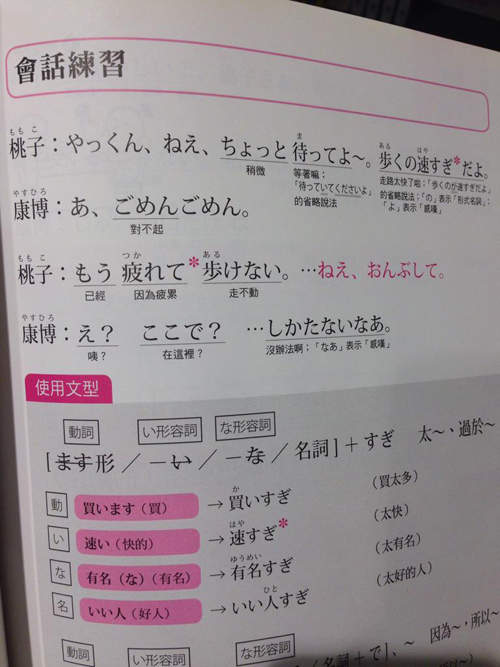 會話練習
ももこ ま ある はや
桃子：やっくん、ねえ、ちょっと待ってよ～。歩くの速すぎ*だよ。
稍微 等著嘛： 走路太快了啦：「歩くのが速すぎだよ」
「待っていてくださいよ」 的省略說法；「の」表示「形式名詞」；
的省略說法 「よ」表示「感嘆」
やすひろ
康博：あ、ごめんごめん。
對不起
ももこ つか ある
桃子：もう疲れて*歩けない。…ねえ、おんぶして。
已經 因為疲累 走不動
やすひろ
康博：え？ ここで？ …しかたないなあ。
咦？ 在這裡？ 沒辦法啊；「なあ」表示「感嘆」
使用文型
動詞 い形容詞 な形容詞
[ます形／－い／－な／名詞]＋すぎ 太～、過於～
か
動 買います（買） → 買いすぎ （買太多）
はや
い 速い（快的） → 速すぎ* （太快）
ゆうめい
な 有名（な）（有名） → 有名すぎ （太有名）
ひと
名 いい人（好人） → いい人すぎ （太好的人）
動詞 い形容詞 な形容詞
名詞＋で]、～ 因為～，所以～